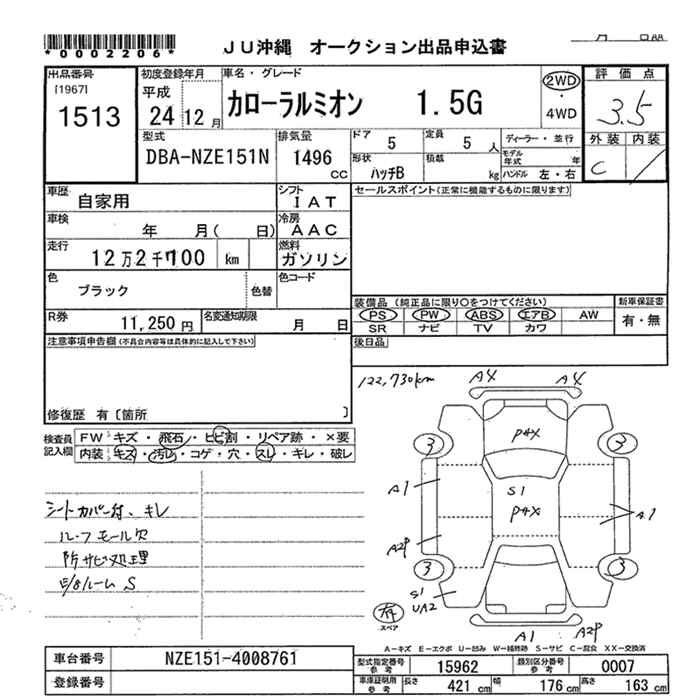 *0002206*
JU沖縄 オークション出品申込書
出品番号
[1967]
1513
初度登録年月
平成
24 12 月
車名・グレード
カローラルミオン 1.5G
2WD
・
4WD
評価点
3.5
外装 内装
C
型式
DBA-NZE151N
排気量
1496 CC
ドア
5
定員
5 人
形状
ハッチB
積載
kg
ディーラー・並行
モデル年式 年
ハンドル 左・右
車歴
自家用
シフト
IAT
車検
年 月( 日)
冷房
AAC
走行
12万2千700 km
燃料
ガソリン
色
ブラック
色替
色コード
R券
11,250 円
名変通知期限
月 日
セールスポイント(正常に機能するものに限ります)
装備品 (純正品に限り○をつけてください)
PS PW ABS エアB AW
SR ナビ TV カワ
新車保証書
有・無
後日品
注意事項申告欄(不具合内容等は具体的に記入して下さい)
修復歴 有〔箇所 〕
検査員記入欄
FW キズ・飛石・ヒビ割・リペア跡・×要
内装 キズ・汚レ・コゲ・穴・スレ・キレ・破レ
シートカバー付、キレ
ルーフモール欠
防サビ処理
122,730km
A4 A4
P4X
3 3
A1
S1
P4X
A1
A2P
3 3
S1
UA2
有
スペア
A1 A2P
A-キズ E-エクボ U-凹み W-補修跡 S-サビ C-腐食 XX-交換済
車台番号
NZE151-4008761
登録番号
型式指定番号
参考
15962
類別区分番号
参考
0007
車庫証明用
参考
長さ 421 cm
幅 176 cm
高さ 163 cm